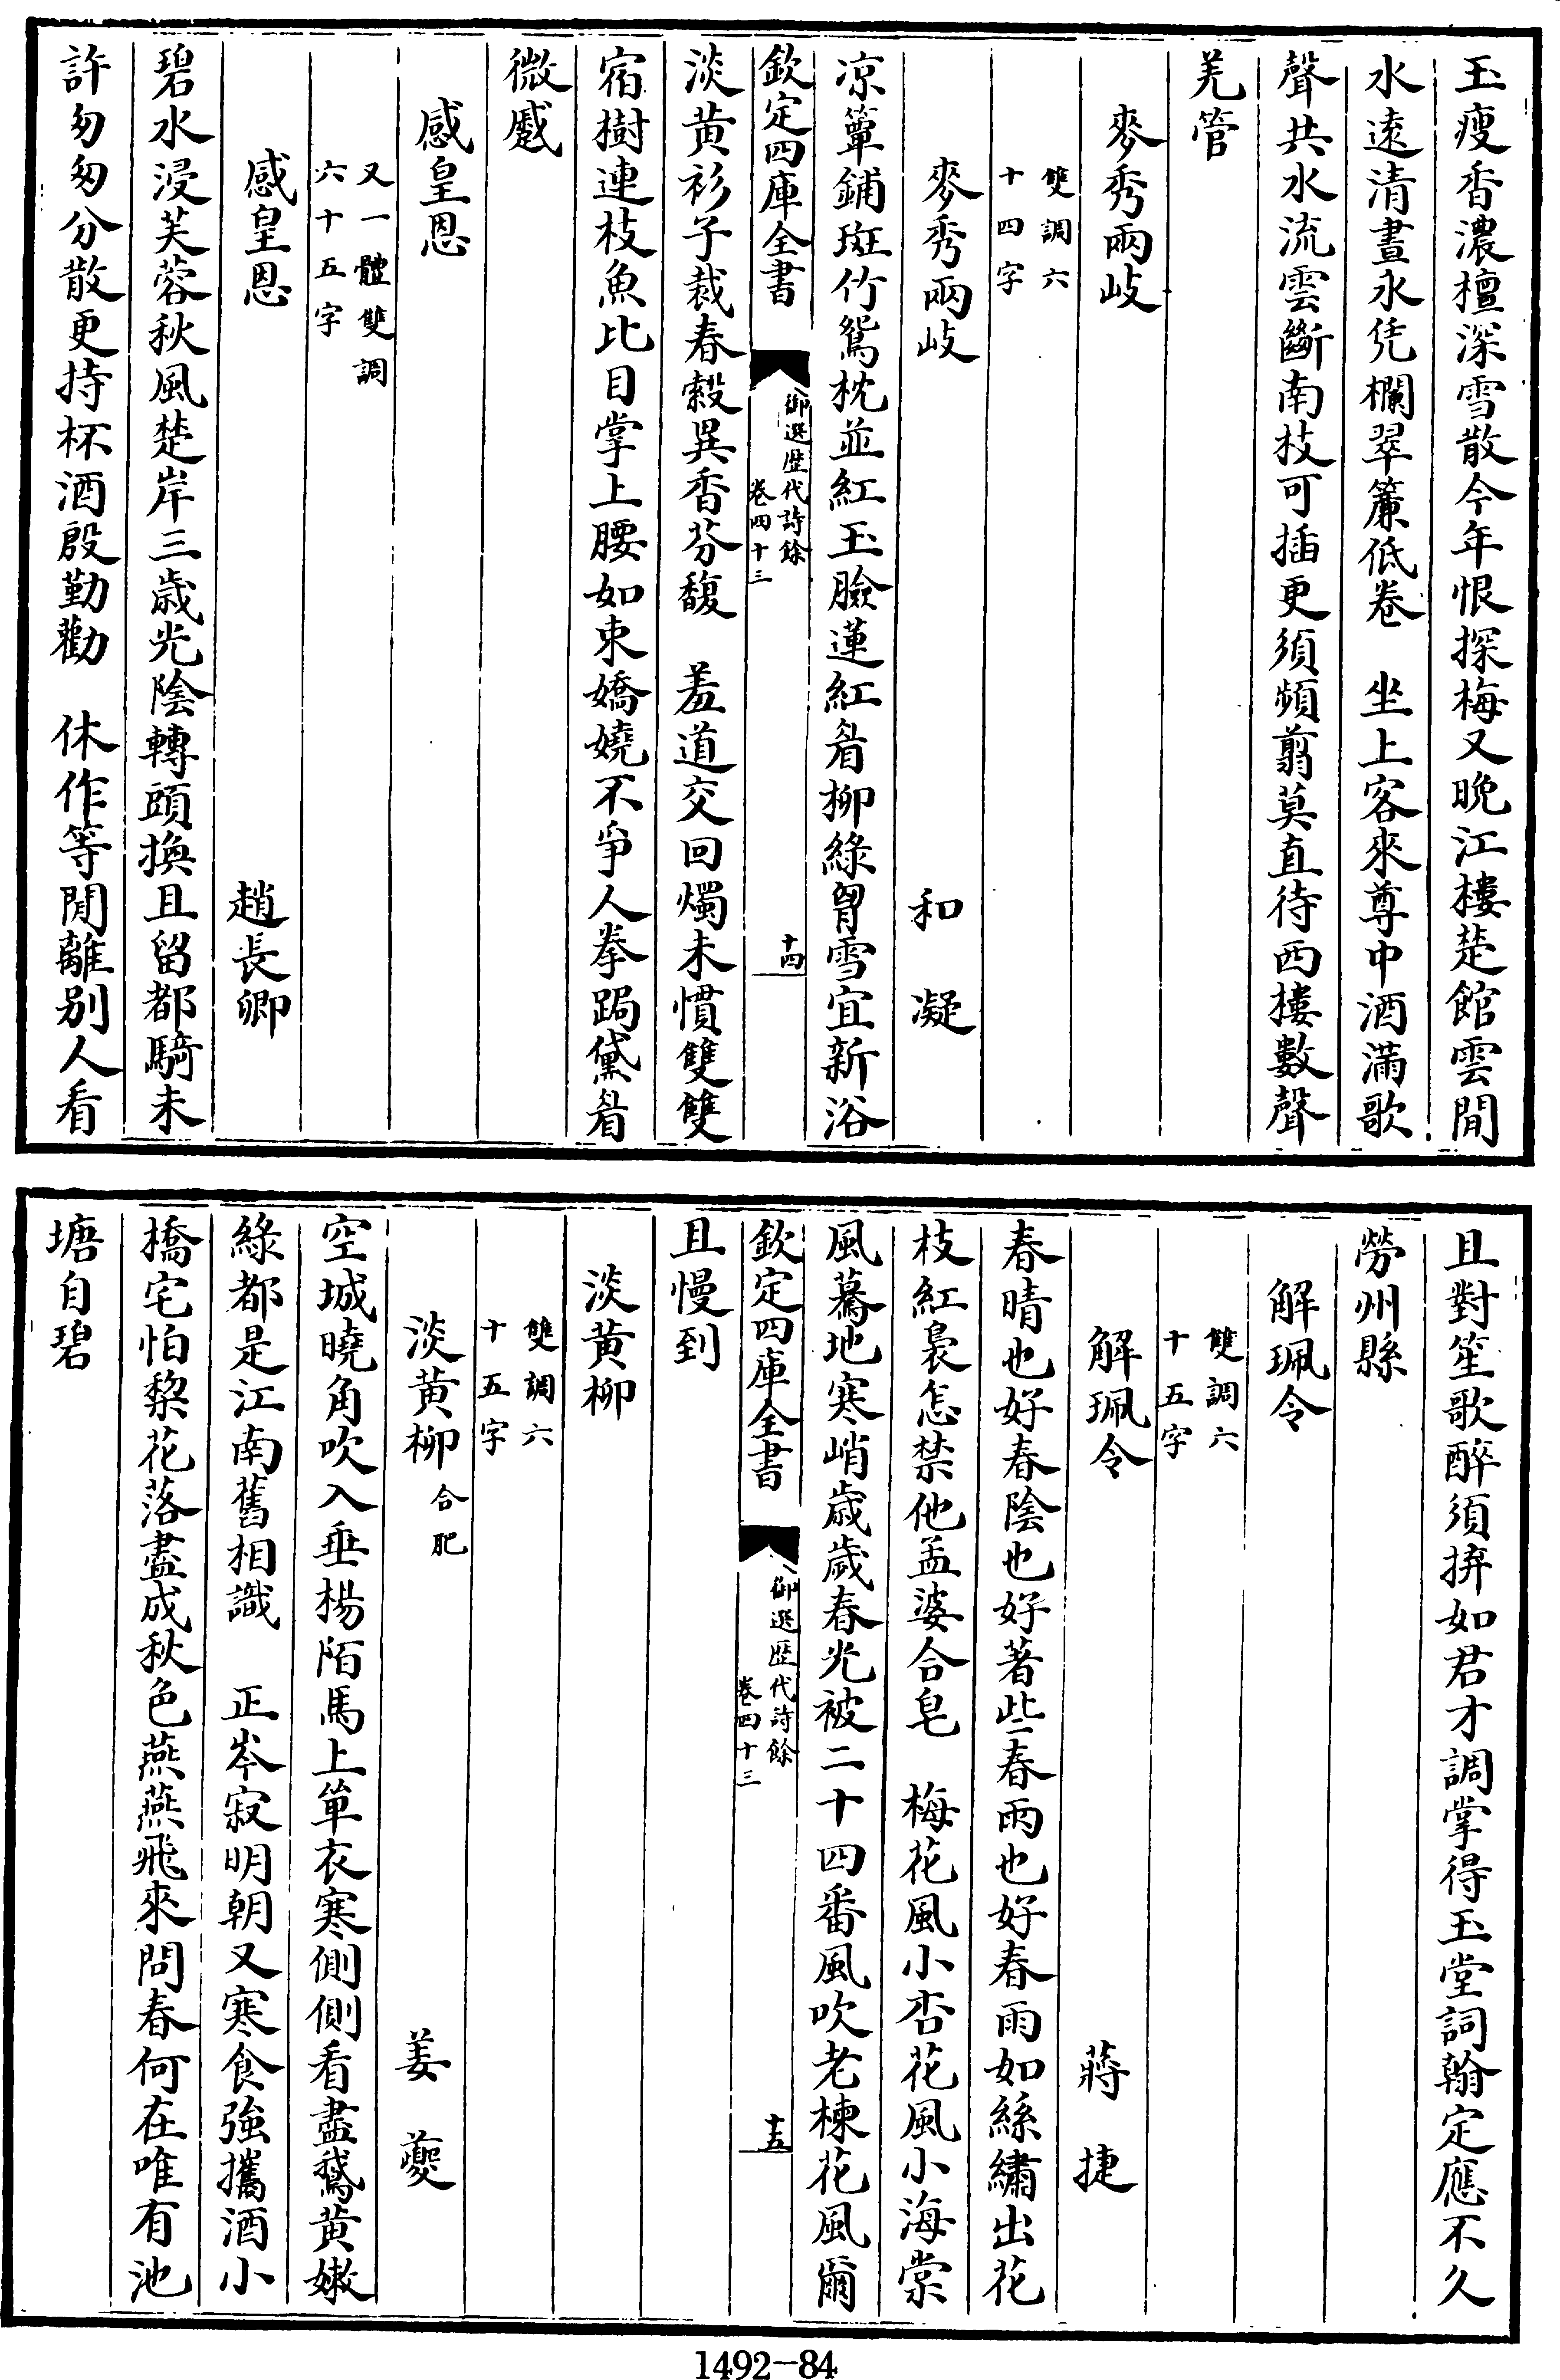 玉瘦香濃檀深雪散今年恨探梅又晚江樓楚館雲間
水遠清晝永凭欄翠簾低卷　坐上客來尊中酒滿歌
聲共水流雲斷南枝可插更須頻翦莫直待西樓數聲
羌管
麥秀兩岐
雙調六
十四字
麥秀兩岐　和凝
凉簟鋪斑竹鴛枕並紅玉臉蓮紅眉柳綠胷雪宜新浴
欽定四庫全書
御選歴代詩餘
卷四十三
十四
淡黄衫子裁春縠異香芬馥　羞道交回燭未慣雙雙
宿樹連枝魚比目掌上腰如束嬌嬈不爭人拳跼黛眉
微蹙
感皇恩
又一體雙調
六十五字
感皇恩　趙長卿
碧水浸芙蓉秋風楚岸三歳光陰轉頭換且留都騎未
許匆匆分散更持杯酒殷勤勸　休作等閒離别人看
且對笙歌醉須拚如君才調掌得玉堂詞翰定應不久
勞州縣
解珮令
雙調六
十五字
解珮令　蔣捷
春晴也好春陰也好著些春雨也好春雨如絲繡出花
枝紅裊怎禁他孟婆合皂　梅花風小杏花風小海棠
風驀地寒峭歳歳春光被二十四番風吹老楝花風爾
欽定四庫全書
御選歴代詩餘
卷四十三
十五
且慢到
淡黄柳
雙調六
十五字
淡黄柳合肥　姜夔
空城曉角吹入垂楊陌馬上單衣寒側側看盡鵞黄嫩
綠都是江南舊相識　正岑寂明朝又寒食強攜酒小
橋宅怕棃花落盡成秋色燕燕飛來問春何在唯有池
塘自碧
1492—84